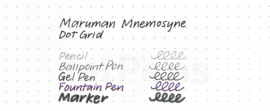 Maruman Mnemosyne
Dot Grid
Pencil
Ballpoint Pen
Gel Pen
Fountain Pen
Marker